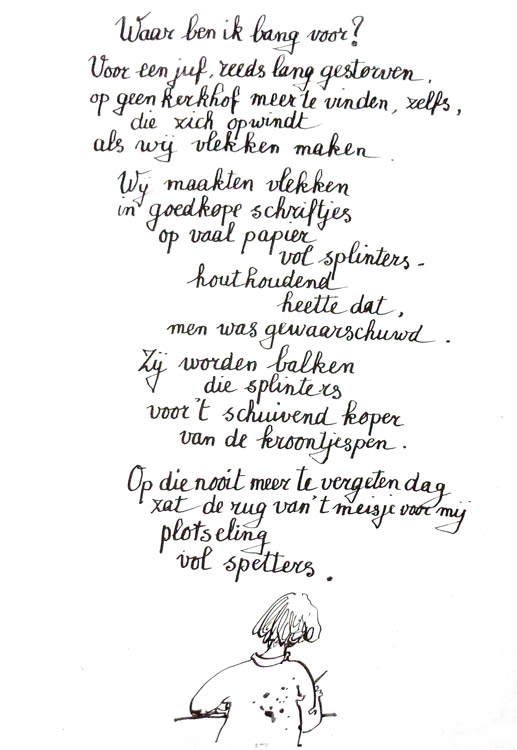 Waar ben ik bang voor?
Voor een juf, reeds lang gestorven,
op geen kerkhof meer te vinden, zelfs,
die zich opwindt
als wij vlekken maken.
Wij maakten vlekken
in goedkope schriftjes
op vaal papier
vol splinters -
houthoudend
heette dat,
men was gewaarschuwd.
Zij worden balken
die splinters
voor 't schuivend koper
van de kroontjespen.
Op die nooit meer te vergeten dag
zat de rug van 't meisje voor mij
plotseling
vol spetters.